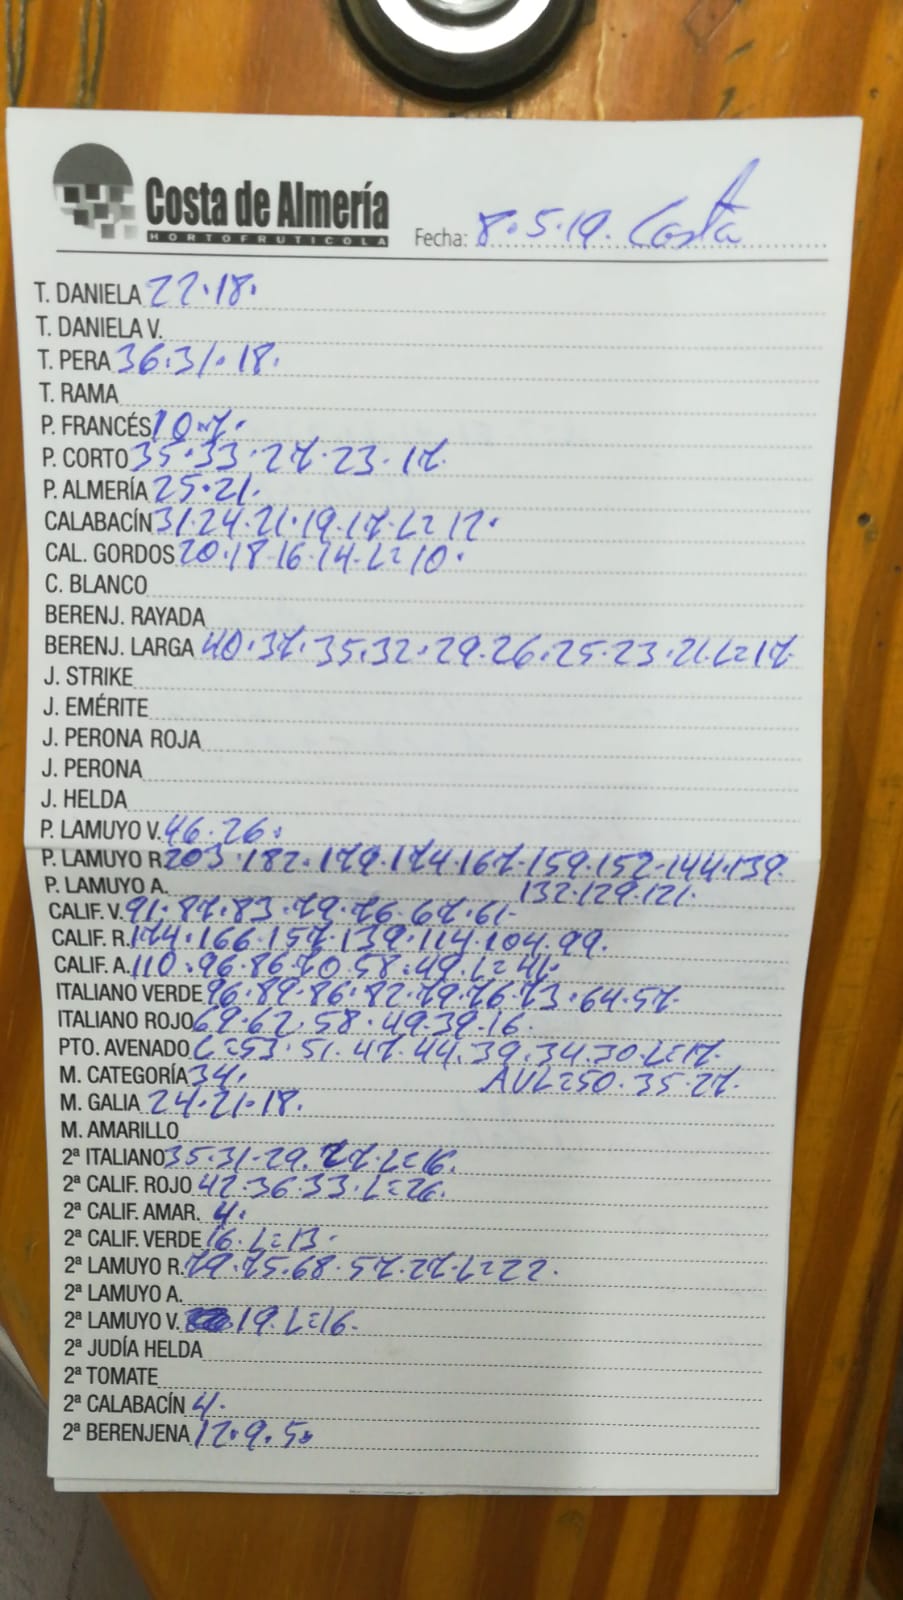 Costa de Almería
HORTOFRUTICOLA
Fecha: 8.5.19. Costa
T. DANIELA 22.18.
T. DANIELA V.
T. PERA 36.31.18.
T. RAMA
P. FRANCÉS 10.7.
P. CORTO 35.33.27.23.17.
P. ALMERÍA 25.21.
CALABACÍN 31.24.21.19.17.L=12.
CAL. GORDOS 20.18.16.14.L=10.
C. BLANCO
BERENJ. RAYADA
BERENJ. LARGA 40.37.35.32.29.26.25.23.21.L=17
J. STRIKE
J. EMÉRITE
J. PERONA ROJA
J. PERONA
J. HELDA
P. LAMUYO V. 46.26.
P. LAMUYO R. 203.182.179.174.167.159.152.144.139.
P. LAMUYO A. 132.129.121.
CALIF. V. 91.87.83.79.76.67.61.
CALIF. R. 174.166.157.139.114.104.99.
CALIF. A. 110.96.86.70.58.49.L=41.
ITALIANO VERDE 96.89.86.82.79.76.73.64.57.
ITALIANO ROJO 69.62.58.49.39.16.
PTO. AVENADO L=53.51.47.44.39.34.30.L=17.
M. CATEGORÍA 34. AVL=50.35.27.
M. GALIA 24.21.18.
M. AMARILLO
2ª ITALIANO 35.31.29.27.L=16.
2ª CALIF. ROJO 42.36.33.L=26.
2ª CALIF. AMAR. 4.
2ª CALIF. VERDE 16.L=13.
2ª LAMUYO R. 79.75.68.57.27.L=22.
2ª LAMUYO A.
2ª LAMUYO V. 19.L=16.
2ª JUDÍA HELDA
2ª TOMATE
2ª CALABACÍN 4.
2ª BERENJENA 12.9.5.